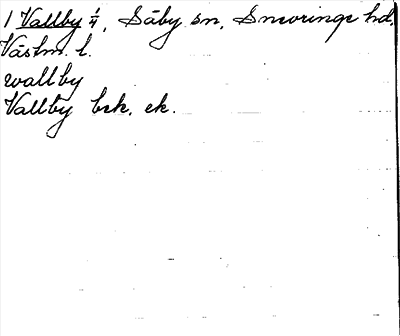 1 Vallby ¼, Säby sn, Snevringe hd,
Västm. l.
wallby
Vallby bsk. ek.